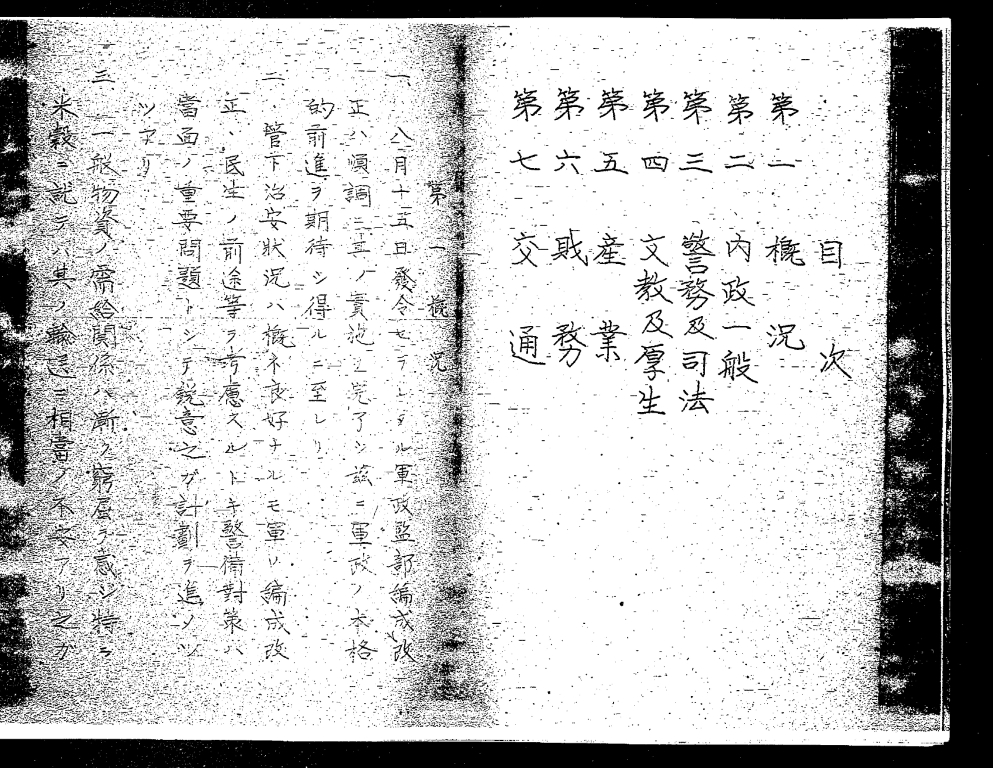 目次
第一 概況
第二 内政一般
第三 警務及司法
第四 文教及厚生
第五 産業
第六 財務
第七 交通
第一 概況
一、八月十五日發令セラレタル軍政監部編成改
正ハ順調ニ其ノ實施ヲ完了シ茲ニ軍政ノ本格
的前進ヲ期待シ得ルニ至レリ
二、管下治安狀況ハ概ネ良好ナルモ軍ノ編成改
正、民生ノ前途等ヲ考慮スルトキ警備對策ハ
當面ノ重要問題トシテ銳意之ガ計劃ヲ進メツ
ツアリ
三、一般物資ノ需給關係ハ漸ク窮屈ヲ感ジ特ニ
米穀ニ就テハ其ノ輸送ニ相當ノ不安アリ之ガ